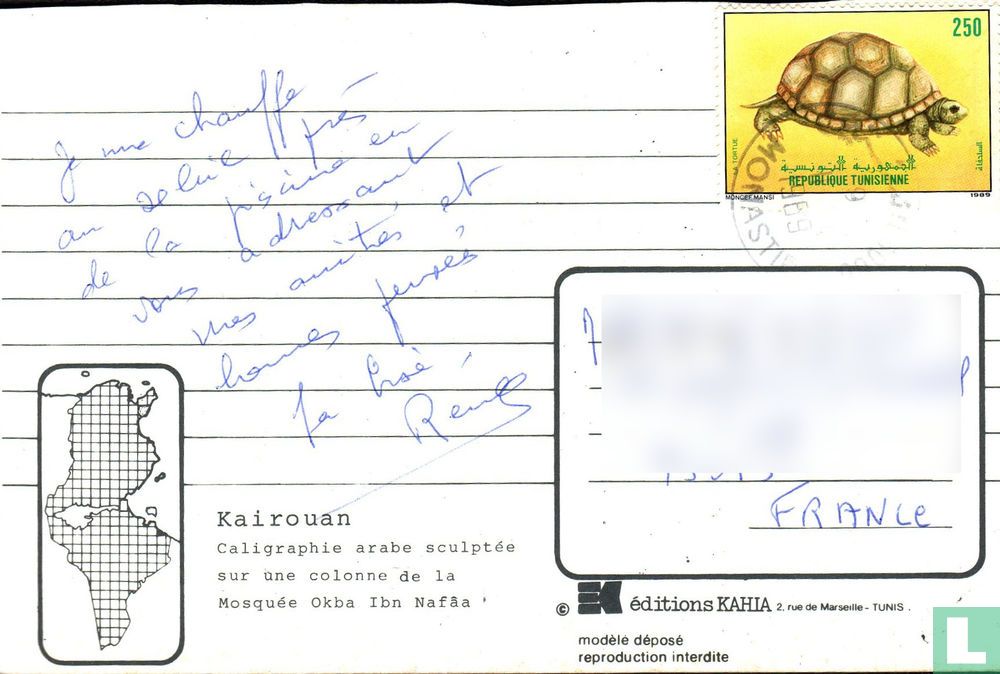 Je me chauffe
au soleil près
de la piscine en
vous adressant
mes amitiés et
bonnes pensées
La bise,
250
TORTUE
السلحفاة
الجمهورية التونسية
REPUBLIQUE TUNISIENNE
MONCEF MANSI
1989
MONASTI
FRANCE
Kairouan
Caligraphie arabe sculptée
sur une colonne de la
Mosquée Okba Ibn Nafâa
© EK éditions KAHIA 2, rue de Marseille - TUNIS.
modèle déposé
reproduction interdite
L